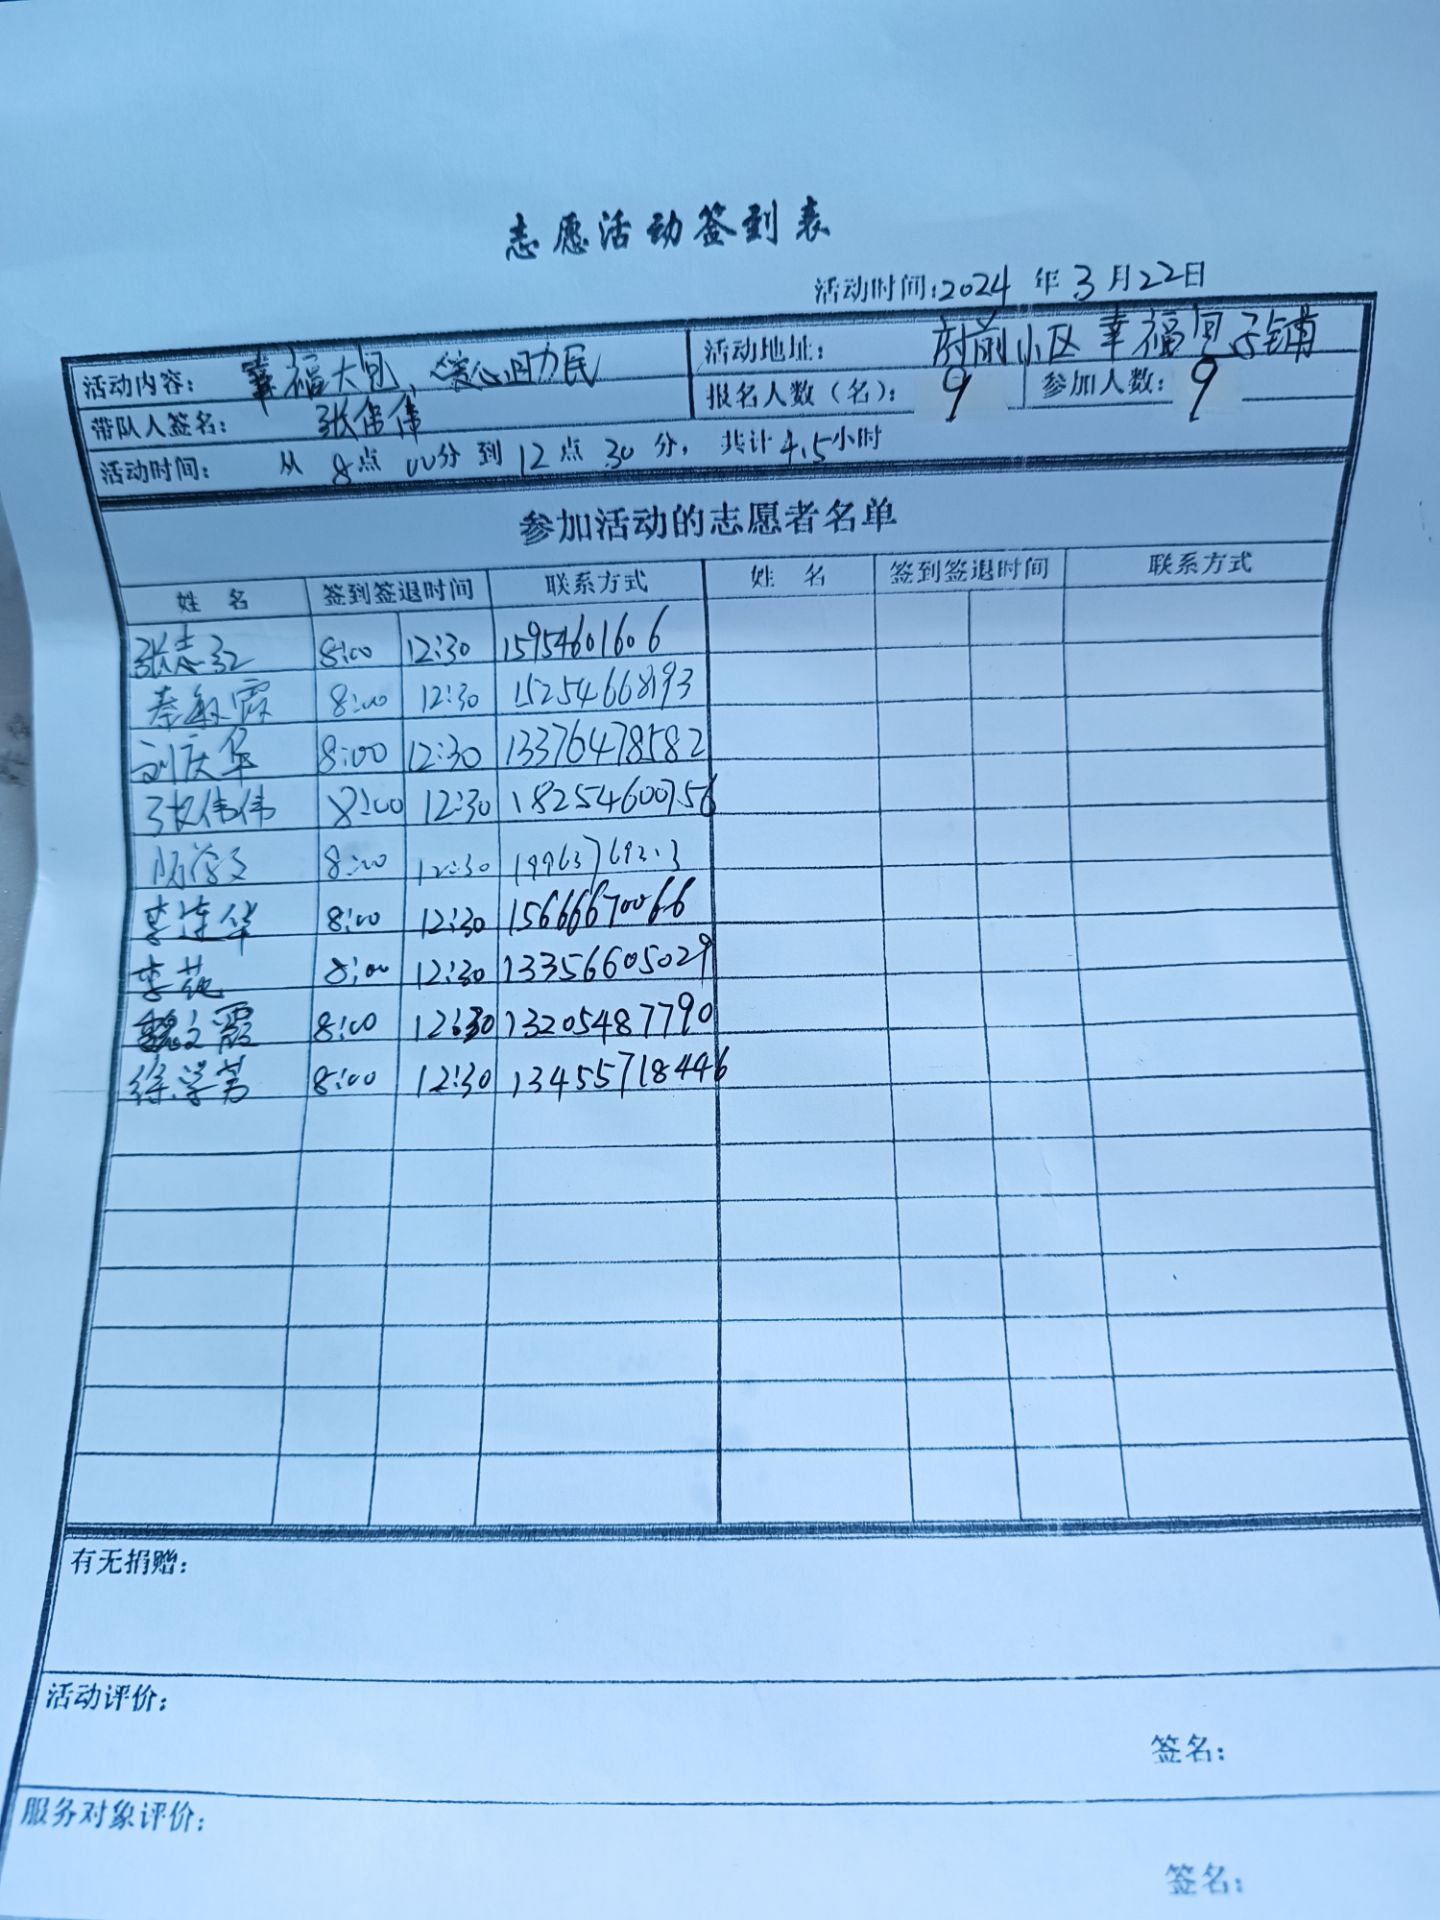 志愿活动签到表
活动时间:2024年3月22日
活动内容: 幸福大包,爱心助民 活动地址: 府前小区幸福包子铺
带队人签名: 张伟伟 报名人数(名): 9 参加人数: 9
活动时间: 从8点00分到12点30分,共计4.5小时
参加活动的志愿者名单
姓 名 签到签退时间 联系方式 姓 名 签到签退时间 联系方式
8:00 12:30 15954601606
秦敏霞 8:00 12:30 15254668193
刘庆华 8:00 12:30 13376478582
张伟伟 8:00 12:30 18254600756
8:00 12:30
李连华 8:00 12:30 15666670066
李苑 8:00 12:30 13356605029
魏文霞 8:00 12:30 13205487790
徐学芳 8:00 12:30 13455718446
有无捐赠:
活动评价:
签名:
服务对象评价:
签名: